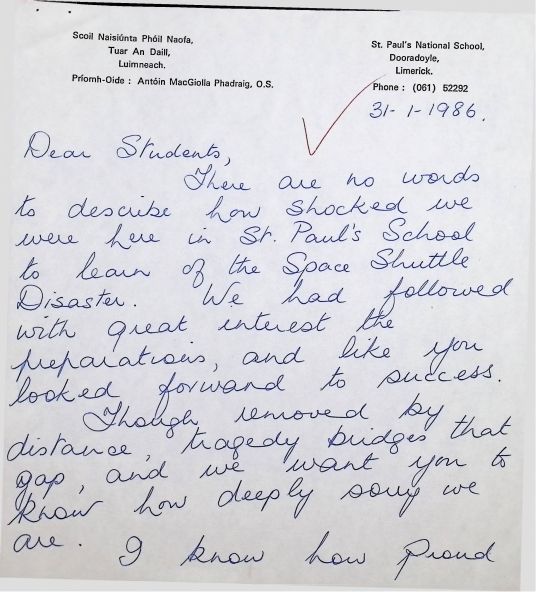 Scoil Naisiúnta Phóil Naofa,
Tuar An Daill,
Luimneach.
Príomh-Oide : Antóin MacGiolla Phadraig, O.S.
St. Paul's National School,
Dooradoyle,
Limerick.
Phone : (061) 52292
31-1-1986.
Dear Students,
There are no words
to describe how shocked we
were here in St. Paul's School
to learn of the Space Shuttle
Disaster. We had followed
with great interest the
preparations, and like you
looked forward to success.
Though removed by
distance, tragedy bridges that
gap, and we want you to
know how deeply sorry we
are. I know how proud